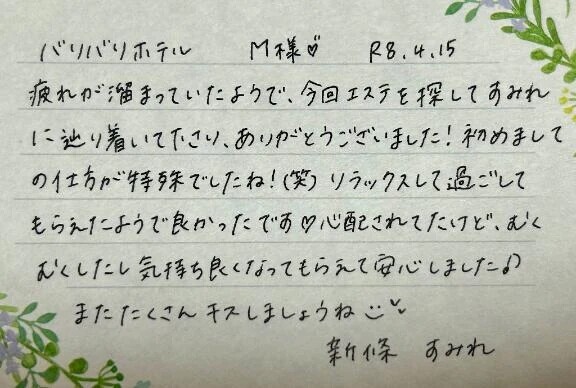 バリバリホテル　M様♡　R8.4.15
疲れが溜まっていたようで、今回エステを探してすみれ
に辿り着いて下さり、ありがとうございました！初めまして
の仕方が特殊でしたね！(笑)リラックスして過ごして
もらえたようで良かったです♡心配されてたけど、むく
むくしたし気持ち良くなってもらえて安心しました♪
またたくさんキスしましょうね
新條　すみれ